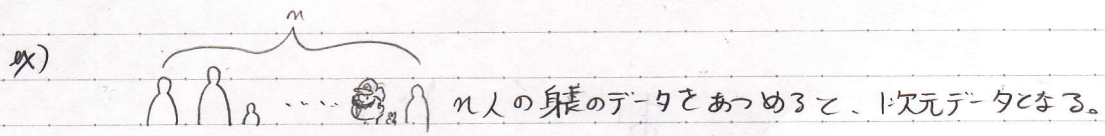 n
ex) ‥‥ n人の身長のデータをあつめると、1次元データとなる。